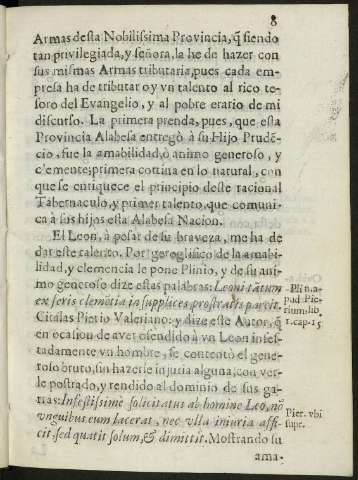 8
Armas desta Nobilissima Provincia, q̃ siendo
tan privilegiada, y señora, la he de hazer con
sus mismas Armas tributaria, pues cada em-
presa ha de tributar oy vn talento al rico te-
soro del Evangelio, y al pobre erario de mi
discurso. La primera prenda, pues, que esta
Provincia Alabesa entregò à su Hijo Prudẽ-
cio, fue la amabilidad, ò animo generoso, y
clemente; primera cortina en lo natural, con
que se enriquece el principio deste racional
Tabernaculo, y primer talento, que comuni-
ca à sus hijos esta Alabesa Nacion.
El Leon, à pesar de su braveza, me ha de
dar este talento. Por geroglifico de la amabi-
lidad, y clemencia le pone Plinio, y de su ani
mo generoso dize estas palabras: Leoni tãtum
ex feris clemẽtia in supplices prostratis parcit.
Citalas Pierio Valeriano: y dize este Autor, q̃
en ocasion de aver ofendido à vn Leon infes-
tadamente vn hombre, se contentò el gene-
roso bruto, sin hazerle injuria alguna, con ver-
le postrado, y rendido al dominio de sus ga-
rras: Infestissime solicitatus ab homine Leo, nõ
vnguibus eum lacerat, nec vlla iniuria affi-
cit, sed quatit solum, & dimittit. Mostrando su
ama-
Plin. a-
pud Pie-
rium lib.
1. cap. 15
Pier. vbi
supr.